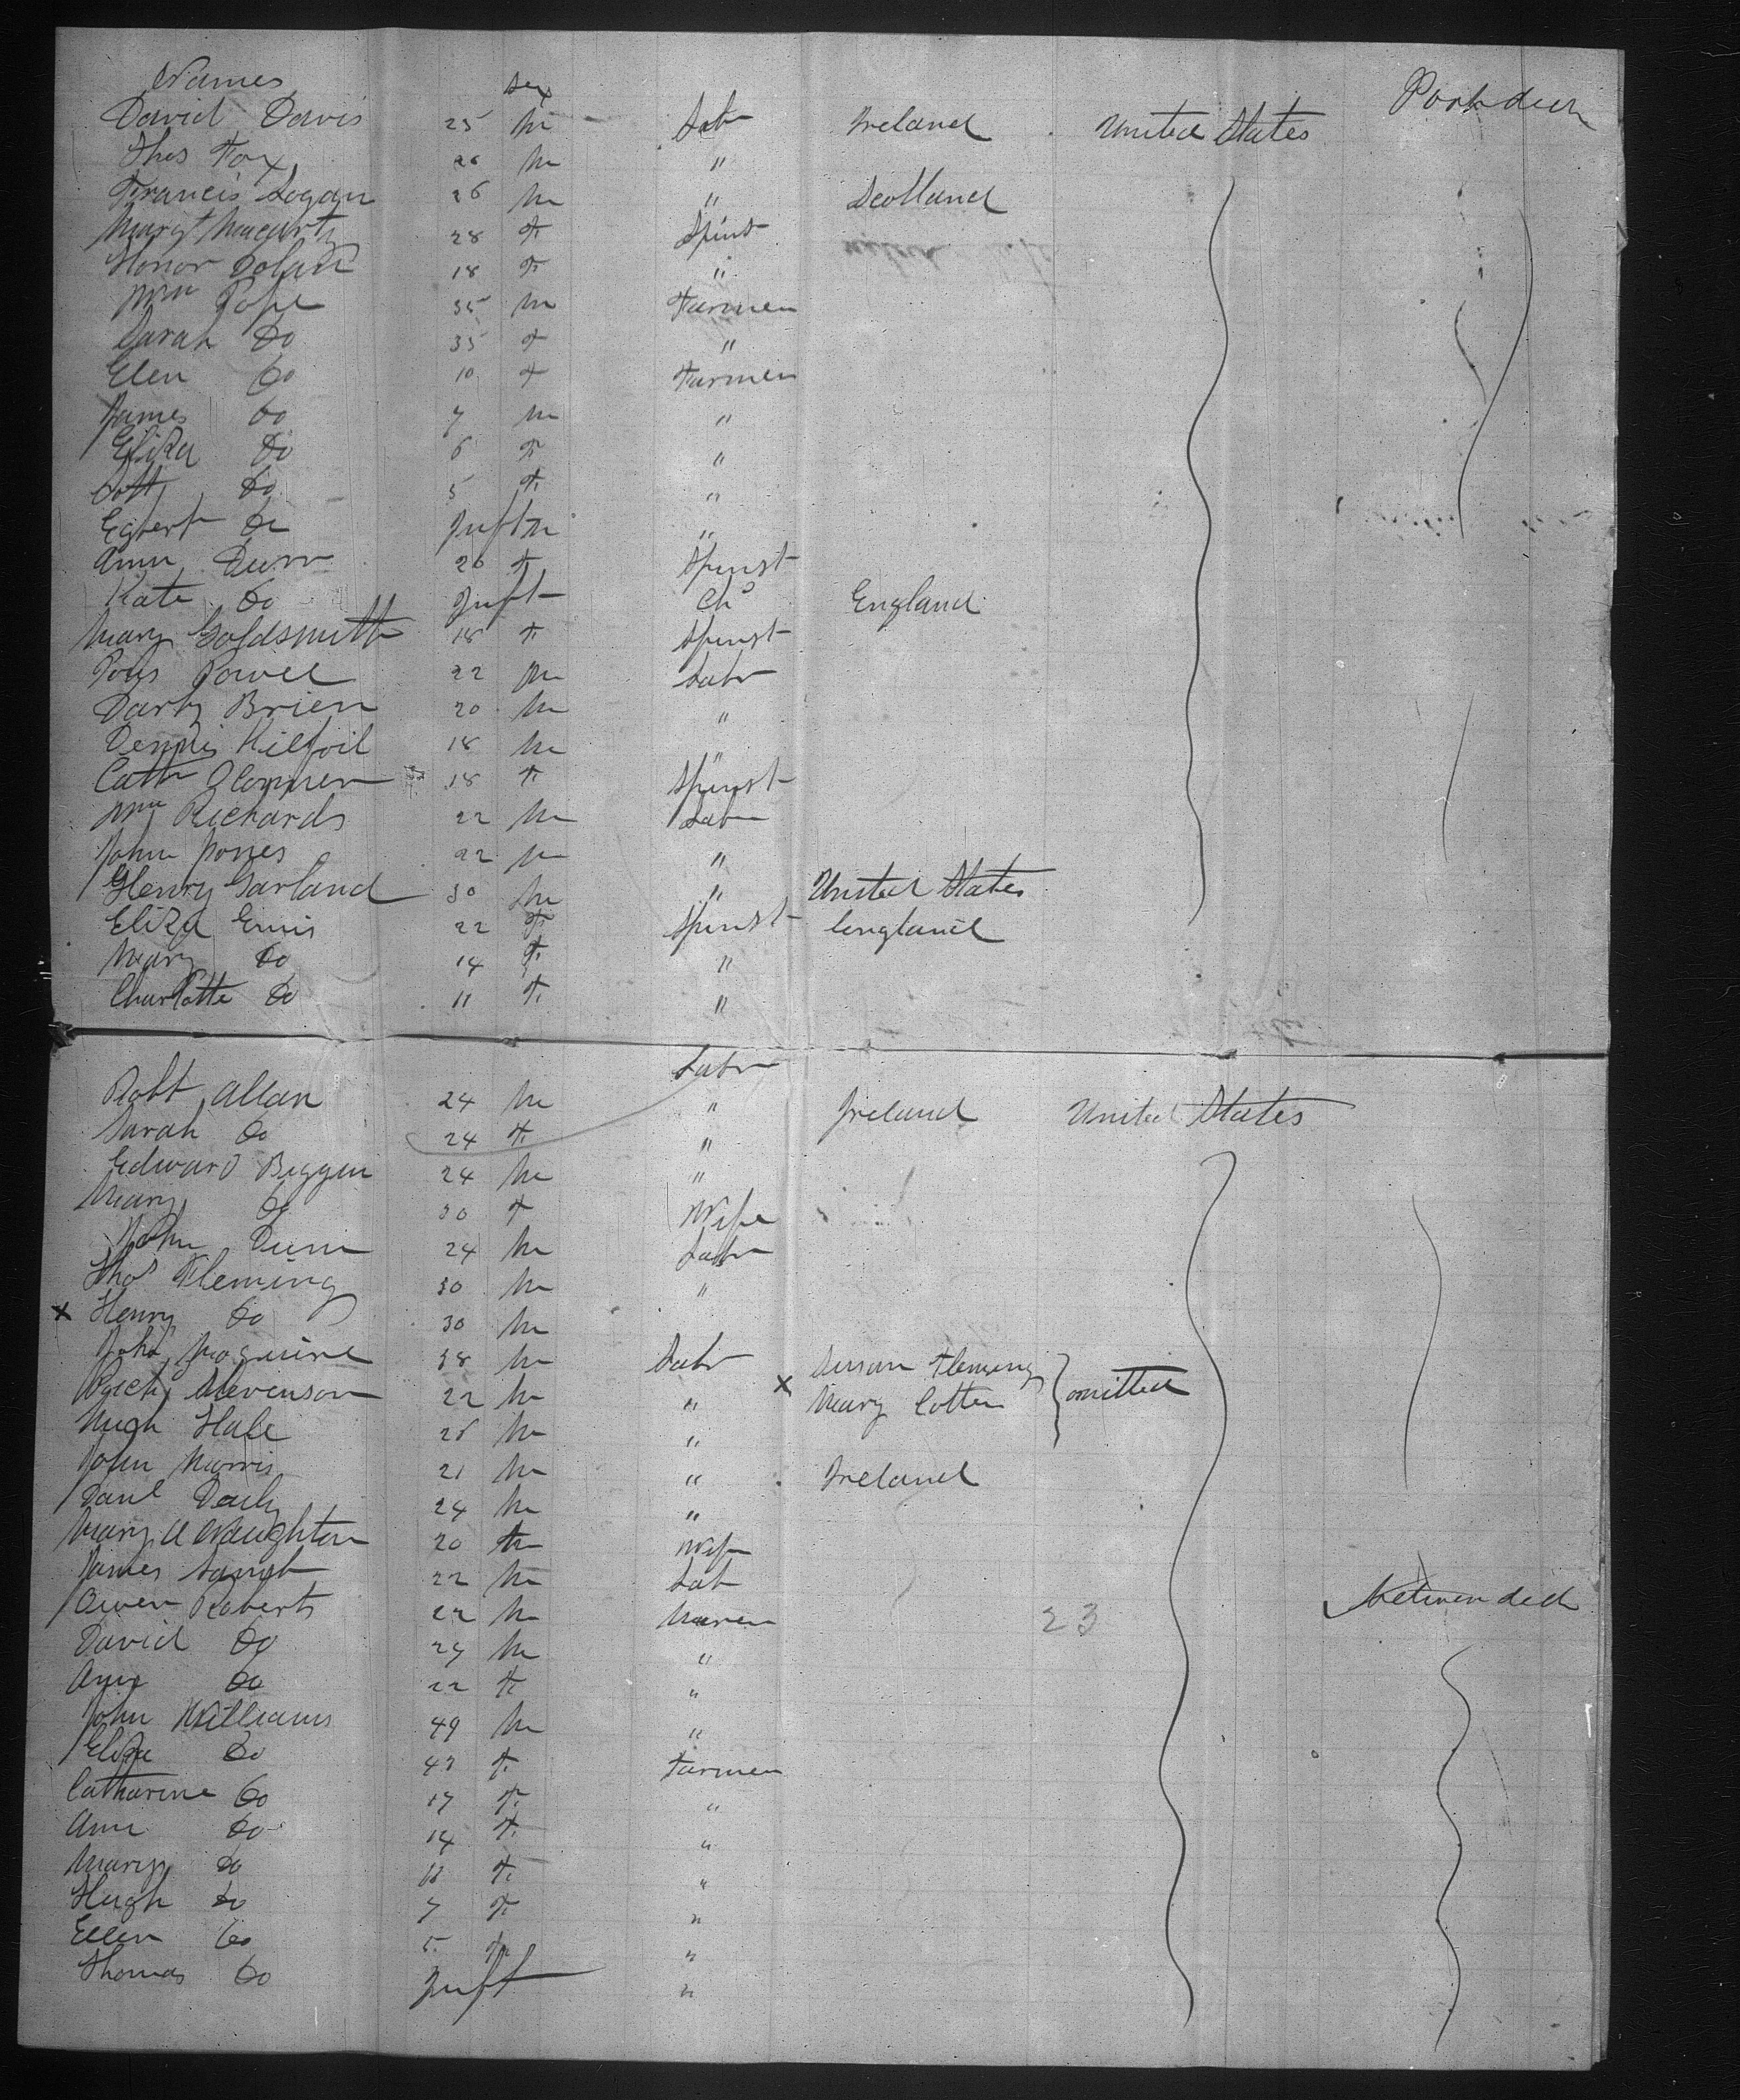 Names Sex
David Davis 25 M Lab Ireland United States Poop deck
Thos Fox 26 M "
Francis Logan 26 M " Scotland
Margt 28 F Spinst
Honor Dolan 18 F "
Wm Pope 35 M Farmer
Sarah Do 35 F "
Elen Do 10 F Farmer
James Do 7 M "
Eliza Do 6 F "
Do 5 F "
Egbert Do Inft M "
Ann Dunn 26 F Spinst
Kate Do Inft Chd England
Mary Goldsmith 18 F Spinst
Powel 22 M Labr
Darby Brien 20 M "
Dennis Kilfoil 18 M "
Cath OConner 18 F Spinst
Wm Richards 22 M Lab
John Jones 22 M "
Henry Garland 30 M " United States
Eliza Ennis 22 F Spinst England
Mary Do 14 F "
Charlotte Do 11 F "
Labr
Robt Allan 24 M " Ireland United States
Sarah Do 24 F "
Edward Beggen 24 M "
Mary Do 30 F Wife
John Dunn 24 M Labr
Thos Fleming 30 M "
x Henry Do 30 M
John Maguire 38 M Labr Susan Fleming
Stevenson 22 M " x Mary Cotten } omitted
Hugh Hale 25 M "
John Morris 21 M " Ireland
Danl Daily 24 M "
Mary A Naughton 20 Wife
James 22 M Lab Between deck
Owen Roberts 22 M 23
David Do 27 M "
Ann Do 22 F "
John Williams 49 M "
Eliza Do 47 F Farmer
Catharine Do 17 F "
Ann Do 14 F "
Mary Do 11 F "
Hugh Do 7 F "
Ellen Do 5 F "
Thomas Do Inft "